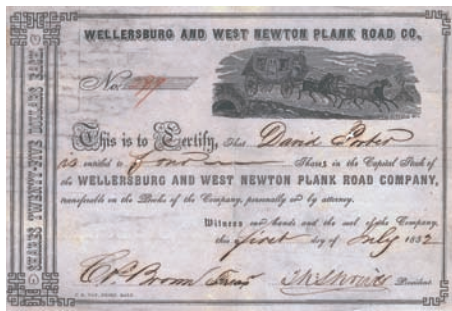 WELLERSBURG AND WEST NEWTON PLANK ROAD CO.
SHARES TWENTY-FIVE DOLLARS EACH
No. 299
This is to Certify, that David Porter
is entitled to four Shares in the Capital Stock of
the WELLERSBURG AND WEST NEWTON PLANK ROAD COMPANY,
transferable on the Books of the Company, personally or by attorney.
Witness our hands and the seal of the Company,
this first day of July 1852
Brown President